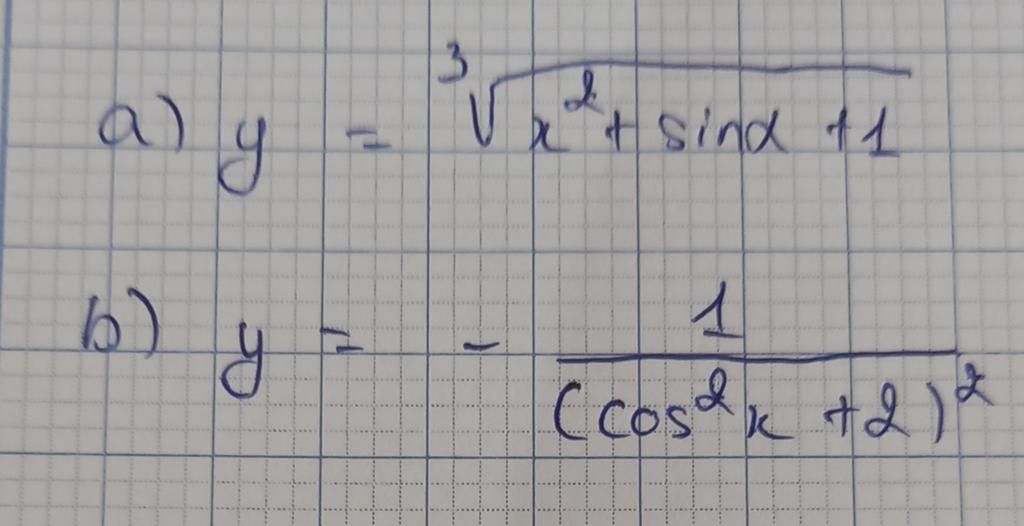 a) y = ∛(x² + sinx + 1)
b) y = - 1/(cos²x + 2)²